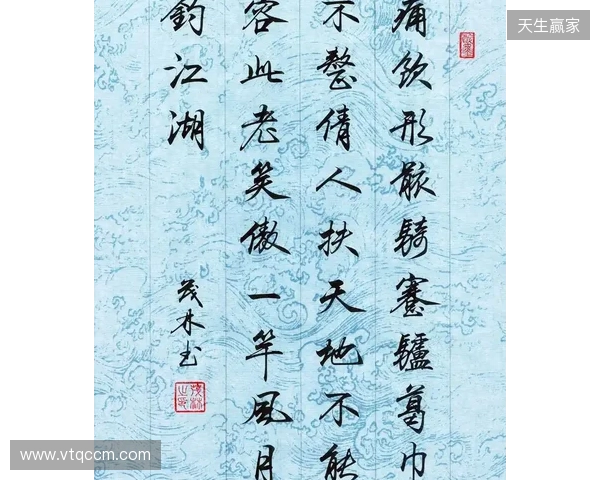 天生赢家
痛饮形骸騎蹇驢葛巾
不整倩人扶天地不能
容此老笑傲一竿風月
釣江湖
茂林书
www.vtqccm.com